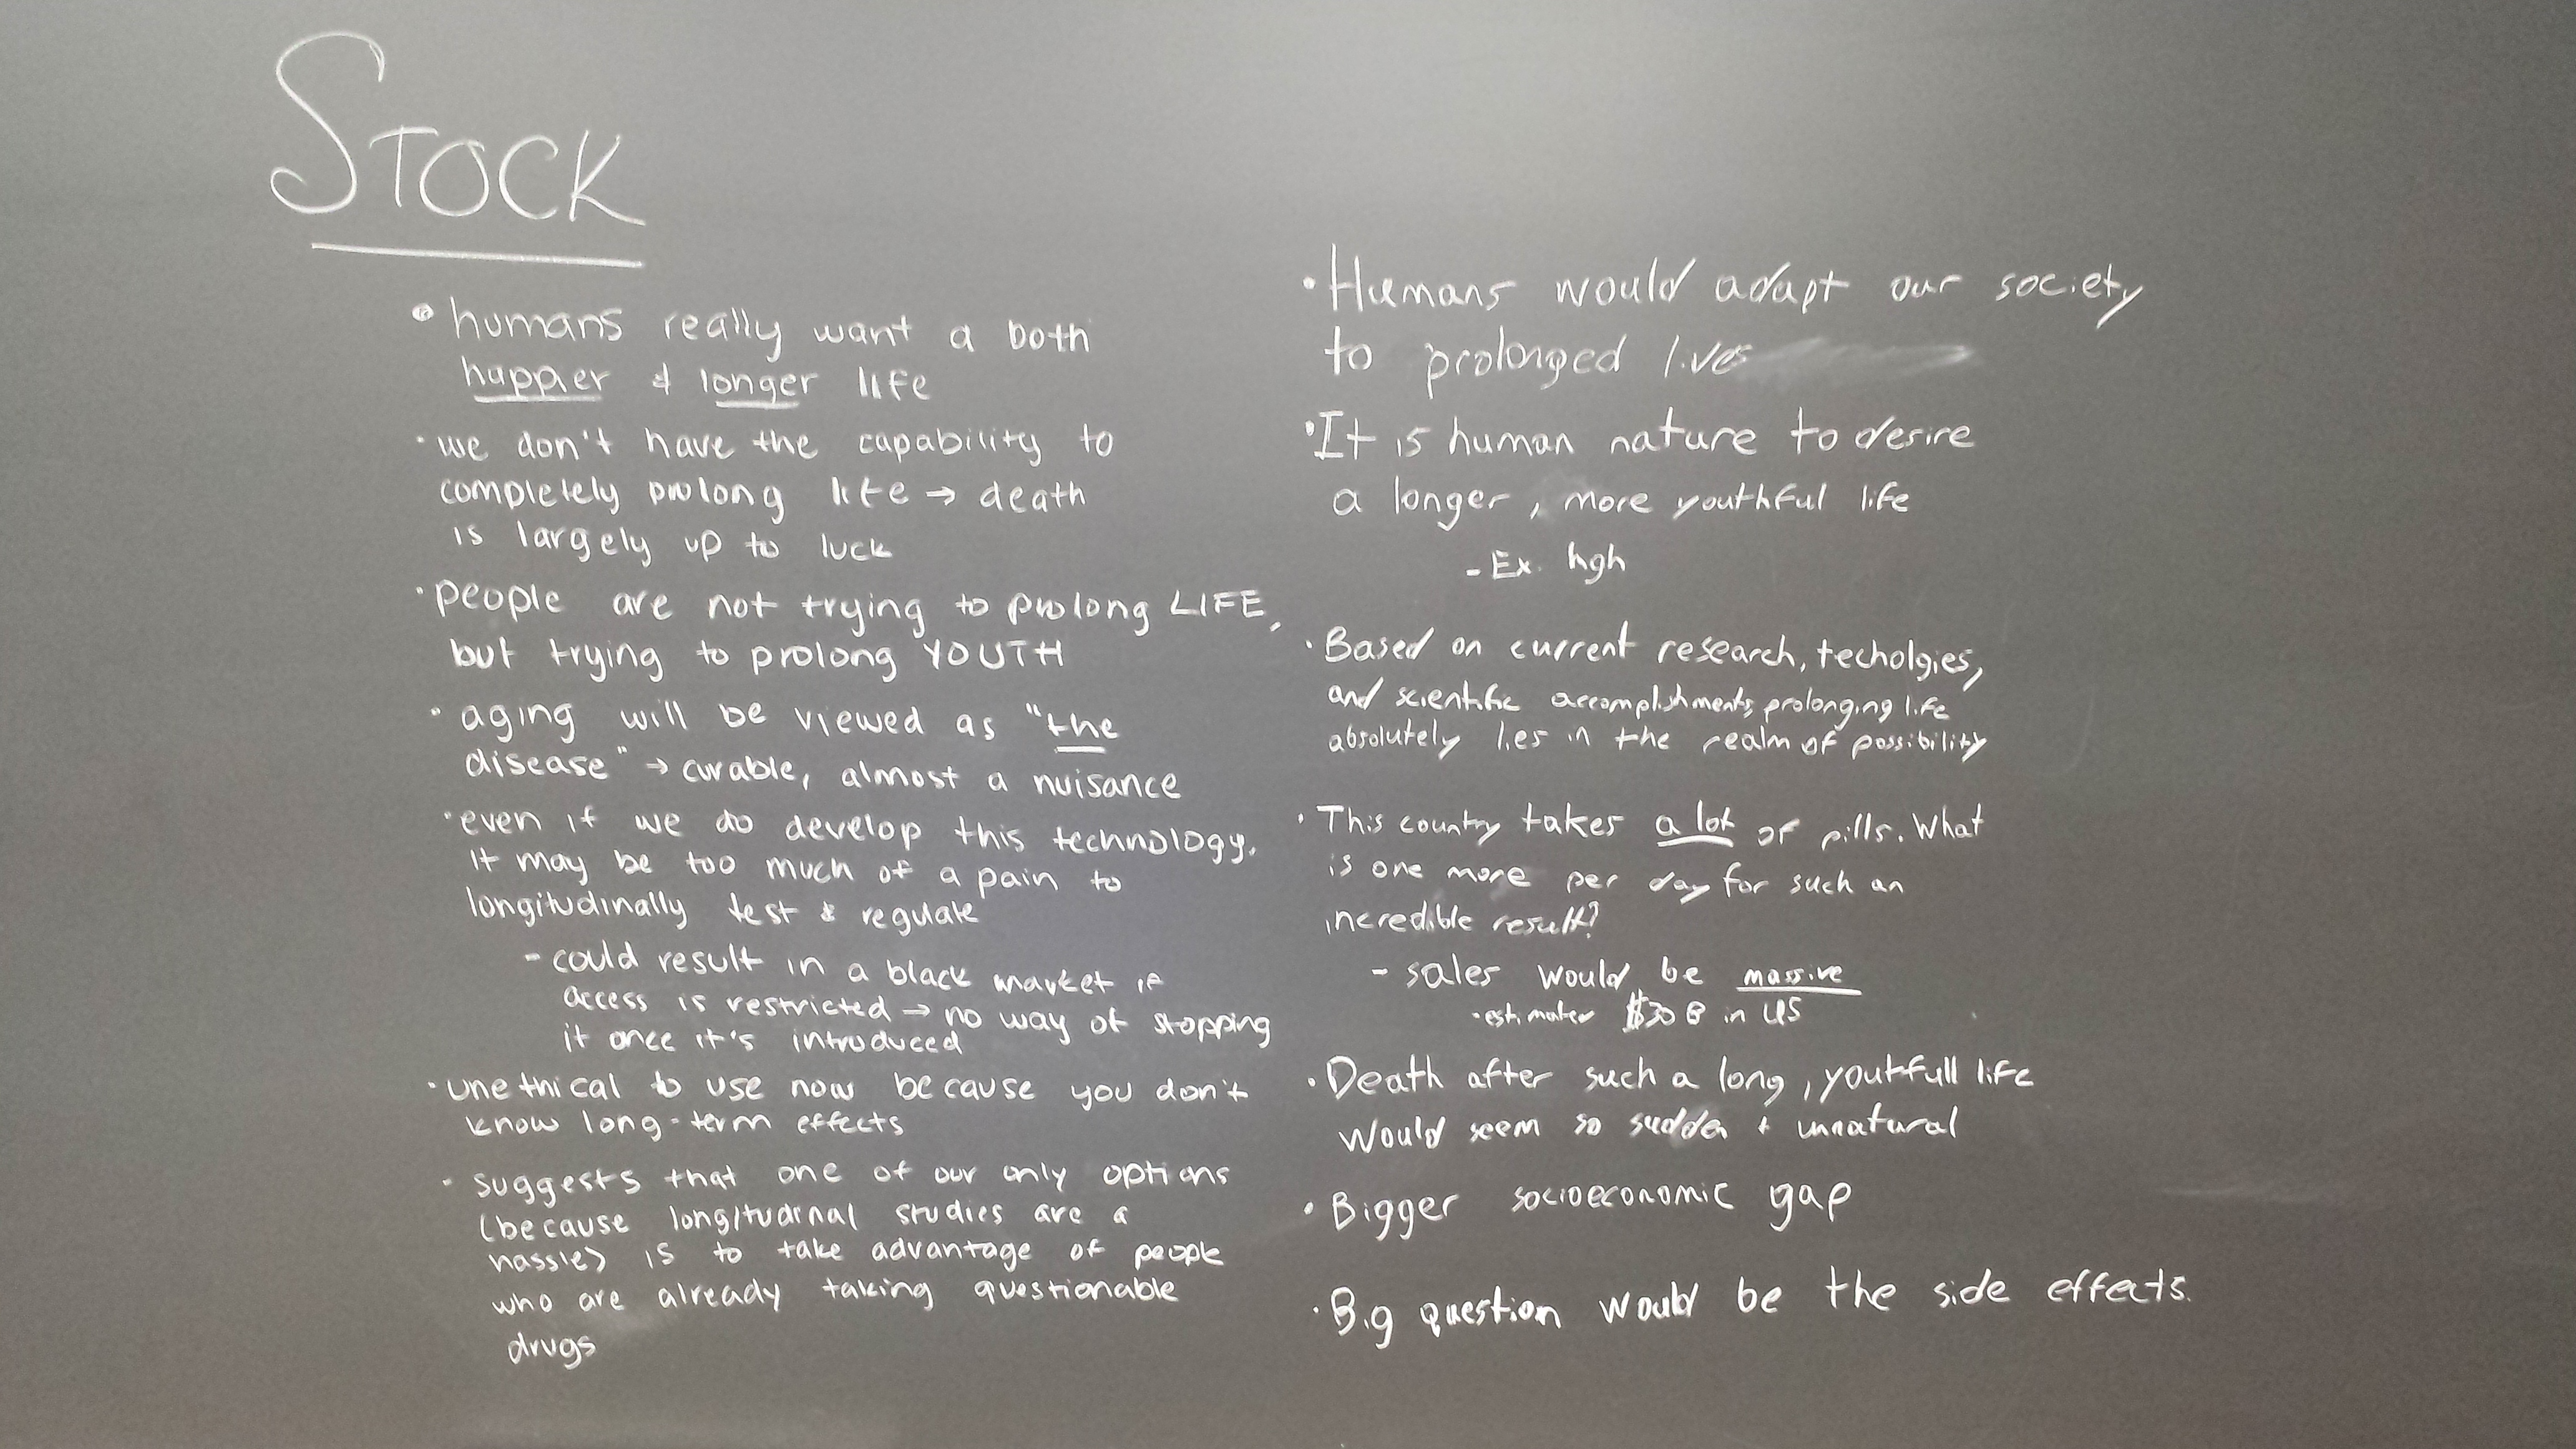 STOCK
• humans really want a both
happier & longer life
· we don't have the capability to
completely prolong life → death
is largely up to luck
· people are not trying to prolong LIFE,
but trying to prolong YOUTH
· aging will be viewed as "the
disease" → curable, almost a nuisance
· even if we do develop this technology,
it may be too much of a pain to
longitudinally test & regulate
- could result in a black market if
access is restricted → no way of stopping
it once it's introduced
· unethical to use now because you don't
know long-term effects
· suggests that one of our only options
(because longitudinal studies are a
hassle) is to take advantage of people
who are already taking questionable
drugs
· Humans would adapt our society
to prolonged lives
· It is human nature to desire
a longer, more youthful life
- Ex. hgh
· Based on current research, techolgies,
and scientific accomplishments, prolonging life
absolutely lies in the realm of possibility
· This country takes a lot of pills. What
is one more per day for such an
incredible result?
- sales would be massive
· estimates $30 B in US
· Death after such a long, youthfull life
would seem so sudden + unnatural
· Bigger socioeconomic gap
· Big question would be the side effects.